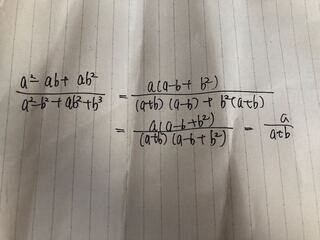 \frac{a^2 - ab + ab^2}{a^2 - b^2 + ab^2 + b^3} = \frac{a(a-b+b^2)}{(a+b)(a-b)+b^2(a+b)}
= \frac{a(a-b+b^2)}{(a+b)(a-b+b^2)} = \frac{a}{a+b}